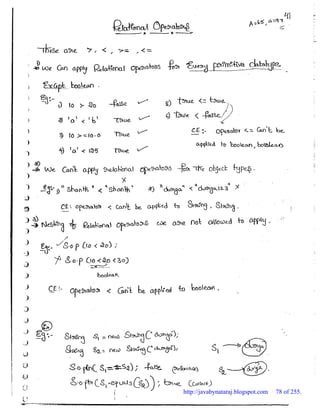 41
Relational Operators
A→65, a→97
These are >, <, >=, <=
① we Can apply Relational operators for Every primitive datatype
Except boolean.
Eg:-
1) 10 > 20 → false ✓
2) 'a' < 'b' True ✓
3) 10 >= 10.0 True ✓
4) 'a' < 125 True ✓
5) true <= true
6) True < false
CE:- operator <= Can't be
applied to boolean, boolean
② we Can't apply relational operators for the object types.
Eg: 1) "Shanth" < "Shanth" X
2) "durga" < "durga123" X
CE: operator < Can't be applied to String, String.
③ Nesting of Relational operators we are not allowed to apply.
Eg. ✓ S.o.p (10 < 20);
X S.o.p (10 < 20 < 30)
boolean
CE:- operator < Can't be applied to boolean,
Eg:-
String S1 = new String("durga");
String S2 = new String("durga");
S.o.pln( S1 == S2); → false
S.o.pln (S1.equals(S2)); true
S1 → durga
S2 → durga
http://javabynataraj.blogspot.com 78 of 255.